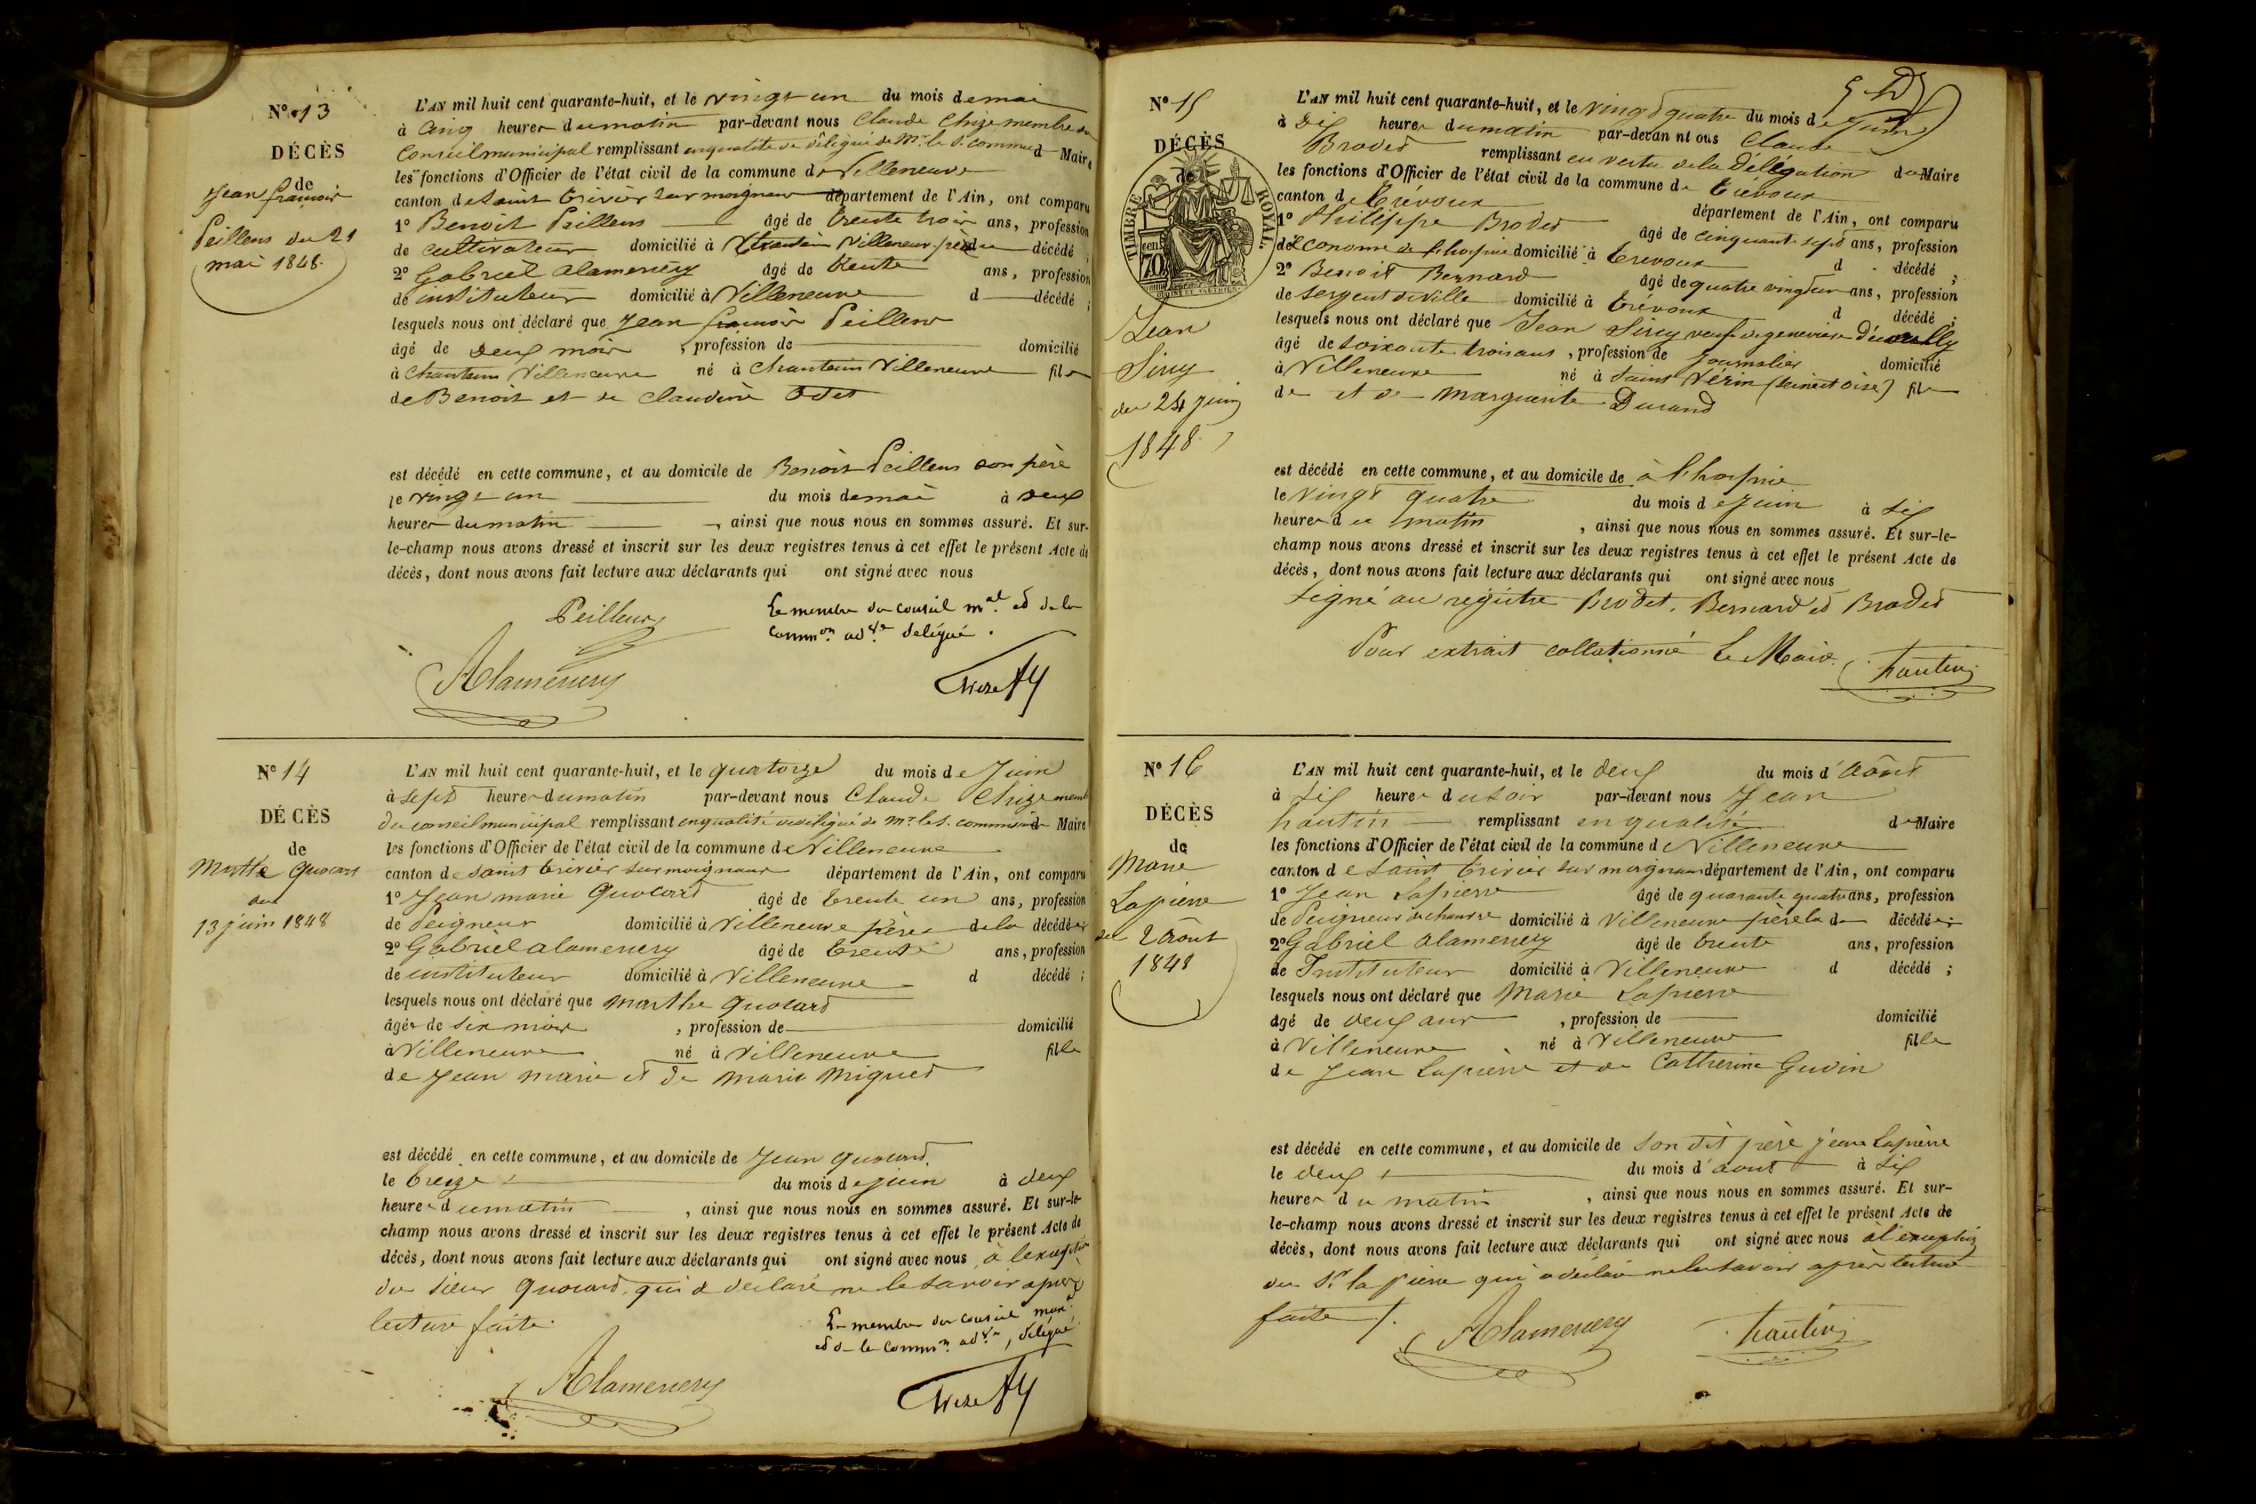 N° 13
DÉCÈS
de
Jean françois
Peillens du 21
mai 1848.
L'AN mil huit cent quarante-huit, et le vingt un du mois de mai
à cinq heures du matin par-devant nous Claude Chize membre du
Conseil municipal remplissant en qualité de délégué de Mr. le d Maire
les fonctions d'Officier de l'état civil de la commune de Villeneuve
canton de saint trivier sur moignans département de l'Ain, ont comparu
1° Benoit Peillens âgé de trente trois ans, profession
de cultivateur domicilié à Villeneuve père du décédé ;
2° Gabriel alamercery âgé de trente ans, profession
de instituteur domicilié à Villeneuve d décédé ;
lesquels nous ont déclaré que Jean françois Peillens
âgé de deux mois , profession de domicilié
à Chantein Villeneuve né à Chantein Villeneuve fils
de Benoit et de claudine Odet
est décédé en cette commune, et au domicile de Benoit Peillens son père
le vingt un du mois de mai à deux
heures du matin , ainsi que nous nous en sommes assuré. Et sur-
le-champ nous avons dressé et inscrit sur les deux registres tenus à cet effet le présent Acte de
décès, dont nous avons fait lecture aux déclarants qui ont signé avec nous
Peillens
Le membre du conseil mal et de la
common adve délégué.
Alamercery
N° 14
DÉCÈS
de
Marthe Quocard
du
13 juin 1848
L'AN mil huit cent quarante-huit, et le quatorze du mois de Juin
à sept heures du matin par-devant nous Claude Chize memb
du conseil municipal remplissant en qualité de délégué de Mr. le d Maire
les fonctions d'Officier de l'état civil de la commune de Villeneuve
canton de saint trivier sur moignans département de l'Ain, ont comparu
1° Jean marie Quocard âgé de trente un ans, profession
de Peigneur domicilié à Villeneuve père de la décédée ;
2° Gabriel alamercery âgé de trente ans, profession
de instituteur domicilié à Villeneuve d décédé ;
lesquels nous ont déclaré que marthe quocard
âgée de six mois , profession de domicilié
à Villeneuve né à Villeneuve fille
de Jean marie et de marie Miguet
est décédé en cette commune, et au domicile de Jean quocard
le treize du mois de juin à deux
heures du matin , ainsi que nous nous en sommes assuré. Et sur-le-
champ nous avons dressé et inscrit sur les deux registres tenus à cet effet le présent Acte de
décès, dont nous avons fait lecture aux déclarants qui ont signé avec nous à l'exception
du sieur Quocard, qui a déclaré ne le savoir après
lecture faite.
Le membre du conseil mun.
et de la commn. adve, délégué
Alamercery
N° 15
DÉCÈS
de
TIMBRE ROYAL.
70
Jean
Siruy
du 24 juin
1848
L'AN mil huit cent quarante-huit, et le vingt quatre du mois de Juin
à dix heures du matin par-devan nt ous Claude
Brodet remplissant en vertu de la Délégation du Maire
les fonctions d'Officier de l'état civil de la commune de trévoux
canton de trévoux département de l'Ain, ont comparu
1° Philippe Brodet âgé de cinquante sept ans, profession
de économe de l'hospice domicilié à trévoux d décédé ;
2° Benoit Bernard âgé de quatre vingt un ans, profession
de sergent de ville domicilié à trévoux d décédé ;
lesquels nous ont déclaré que Jean Siruy veuf de geneviève
âgé de soixante trois ans , profession de journalier domicilié
à Villeneuve né à Saint Vérin (Seine et oise) fils
de et de marguerite Durand
est décédé en cette commune, et au domicile de à l'hospice
le vingt quatre du mois de Juin à six
heures du matin , ainsi que nous nous en sommes assuré. Et sur-le-
champ nous avons dressé et inscrit sur les deux registres tenus à cet effet le présent Acte de
décès, dont nous avons fait lecture aux déclarants qui ont signé avec nous
signé au régistre Brodet, Bernard et Brodet
Pour extrait collationné Le Maire
hautin
N° 16
DÉCÈS
de
Marie
Lapierre
du 2 Août
1848
L'AN mil huit cent quarante-huit, et le deux du mois d'Août
à six heures du soir par-devant nous Jean
hautin remplissant en qualité de Maire
les fonctions d'Officier de l'état civil de la commune de Villeneuve
canton de saint trivier sur moignans département de l'Ain, ont comparu
1° Jean Lapierre âgé de quarante quatre ans, profession
de Peigneur de chanvre domicilié à Villeneuve père de la décédée ;
2° Gabriel alamercery âgé de trente ans, profession
de Instituteur domicilié à Villeneuve d décédé ;
lesquels nous ont déclaré que Marie Lapierre
âgé de deux ans , profession de domicilié
à Villeneuve né à Villeneuve fille
de Jean Lapierre et de Catherine Guvin
est décédé en cette commune, et au domicile de son dit père jean Lapierre
le deux du mois d'aout à six
heures du matin , ainsi que nous nous en sommes assuré. Et sur-
le-champ nous avons dressé et inscrit sur les deux registres tenus à cet effet le présent Acte de
décès, dont nous avons fait lecture aux déclarants qui ont signé avec nous à l'exception
du Sr. la pierre qui a déclaré ne le savoir après lecture
faite
Alamercery
hautin